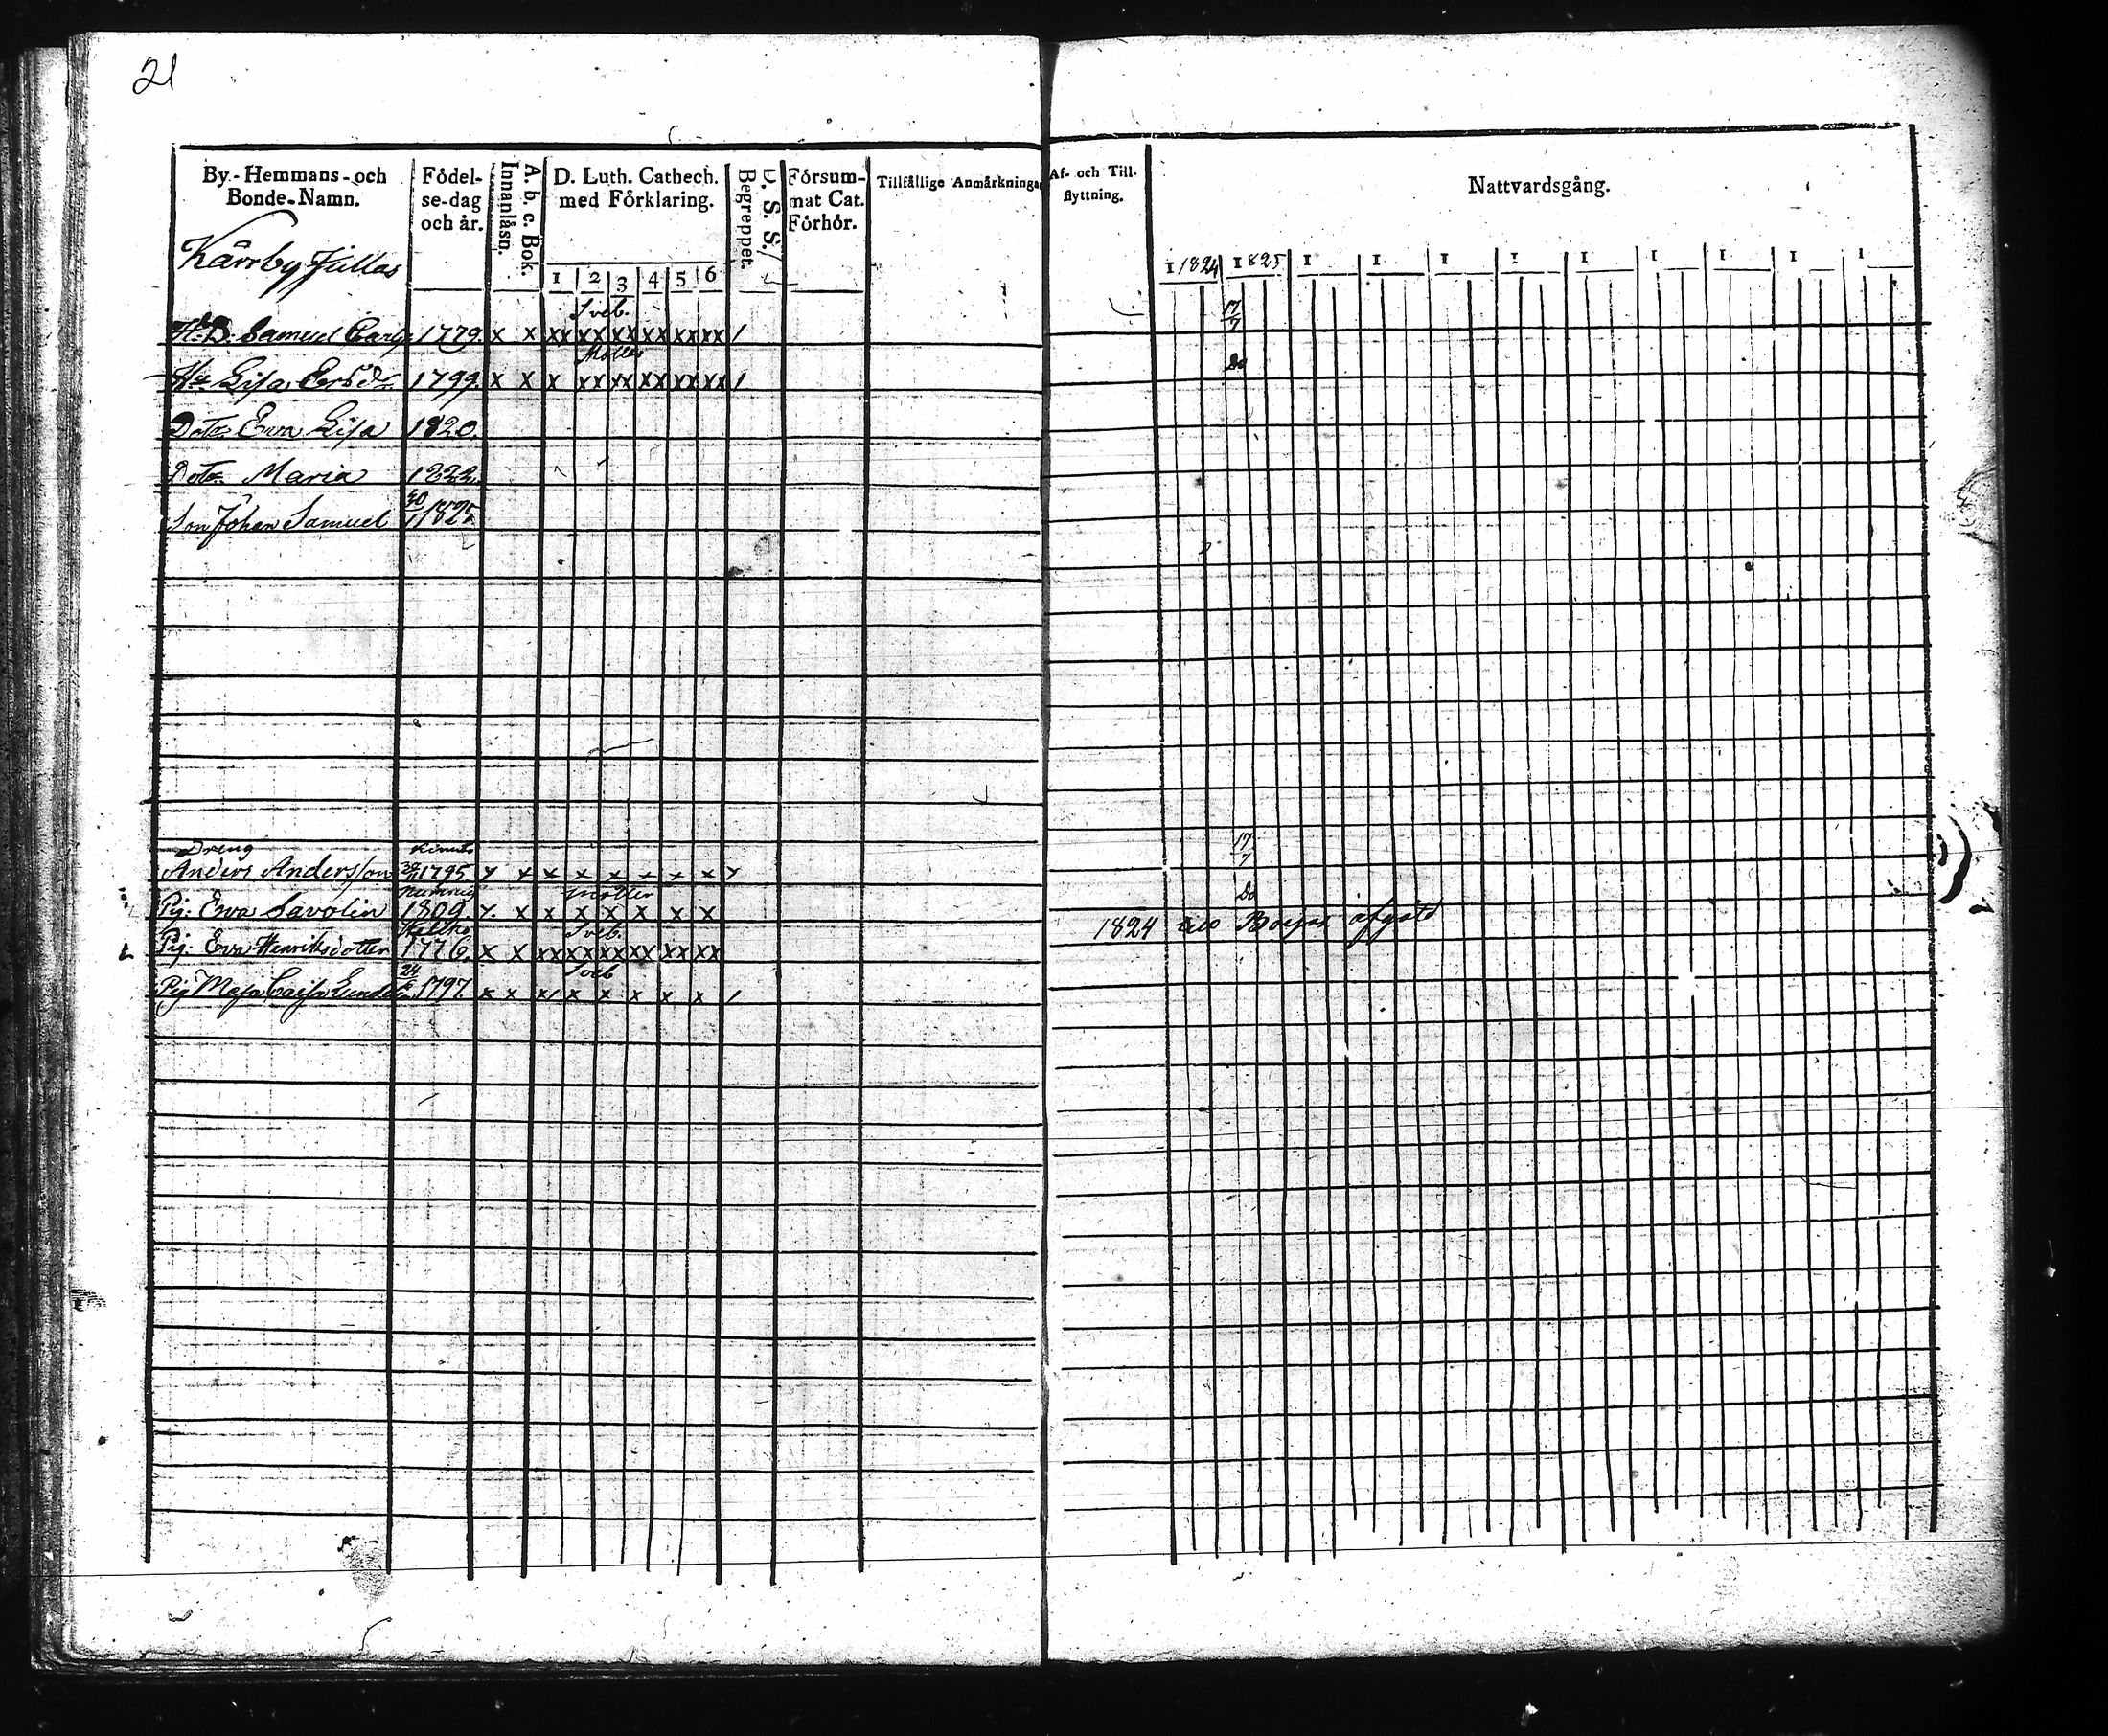 21
By-Hemmans-och Bonde-Namn.
Födel-se-dag och år.
Innanläsn.
A. b. c. Bok.
D. Luth. Cathech. med Förklaring.
1 2 3 4 5 6
Begreppet.
D. S. S.
Försum-mat Cat. Förhör.
Tillfällige Anmärkningar
Af- och Till-flyttning.
Nattvardsgång.
1 1824 1 1825 1 1 1 1 1 1 1 1 1
Kärrby Jullas
Sveb. 17/7
Samuel 1779. x x xx xx xx xx xx xx /
Möller Do
Lisa 1799. x x x xx xx xx xx xx /
Dotr Ewa Lisa 1820.
Dotr Maria
Son Johan Samuel 1825
Dreng 17/7
Anders Andersson 1795 x x x x x x x x
Möller Do
Pig: Ewa Savolin 1809. x x x x x x x x
Sveb. 1824 afgått
Pig: Ewa Henriksdotter 1776. x x xx xx xx xx xx xx
24 Sveb
Pig Maja Cajsa 1797. x x x/ x x x x x /